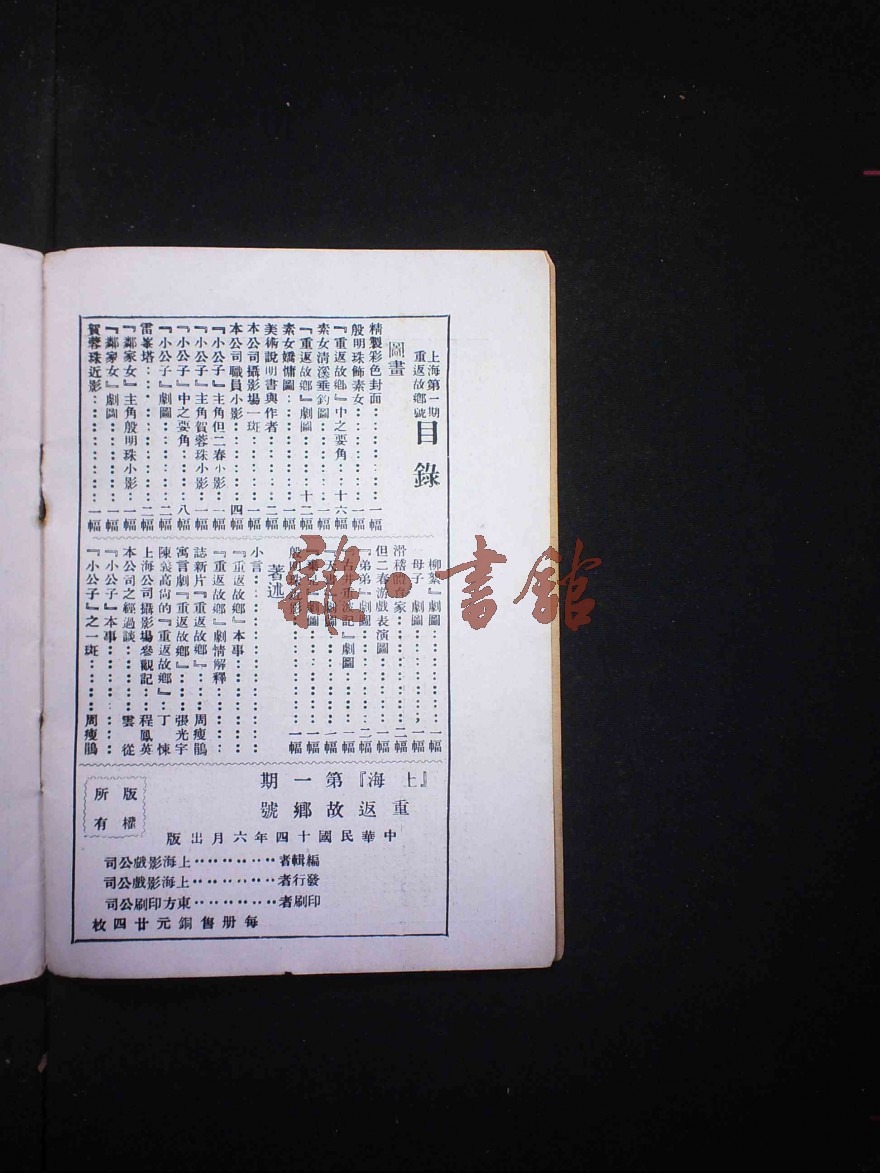 上海第一期
重返故鄉號
目錄
圖畫
精製彩色封面⋯⋯一幅
殷明珠飾素女⋯⋯一幅
『重返故鄉』中之要角⋯⋯十六幅
素女清溪垂釣圖⋯⋯一幅
『重返故鄉』劇圖⋯⋯十二幅
素女嬌慵圖⋯⋯一幅
美術說明書與作者⋯⋯二幅
本公司攝影場一斑⋯⋯一幅
本公司職員小影⋯⋯四幅
『小公子』主角但二春小影⋯⋯一幅
『小公子』主角賀蓉珠小影⋯⋯一幅
『小公子』中之要角⋯⋯八幅
『小公子』劇圖⋯⋯二幅
雷峯塔⋯⋯二幅
『鄰家女』主角殷明珠小影⋯⋯一幅
『鄰家女』劇圖⋯⋯一幅
賀蓉珠近影⋯⋯一幅
『柳絮』劇圖⋯⋯一幅
『母子』劇圖⋯⋯一幅
滑稽體育家⋯⋯二幅
但二春游戲表演圖⋯⋯一幅
『弟弟』劇圖⋯⋯二幅
『古井重波記』劇圖⋯⋯一幅
劇圖⋯⋯一幅
劇圖⋯⋯一幅
殷明珠近影⋯⋯一幅
著述
小言⋯⋯
『重返故鄉』本事⋯⋯
『重返故鄉』劇情解釋⋯⋯
誌新片『重返故鄉』⋯⋯周瘦鵑
寓言劇『重返故鄉』⋯⋯張光宇
陳義高尚的『重返故鄉』⋯⋯丁悚
上海公司攝影場參觀記⋯⋯程鳳英
本公司之經過談⋯⋯雲從
『小公子』本事⋯⋯
『小公子』之一斑⋯⋯周瘦鵑
『上海』第一期
重返故鄉號
版權所有
中華民國十四年六月出版
編輯者⋯⋯上海影戲公司
發行者⋯⋯上海影戲公司
印刷者⋯⋯東方印刷公司
每册售銅元廿四枚
龍·書館